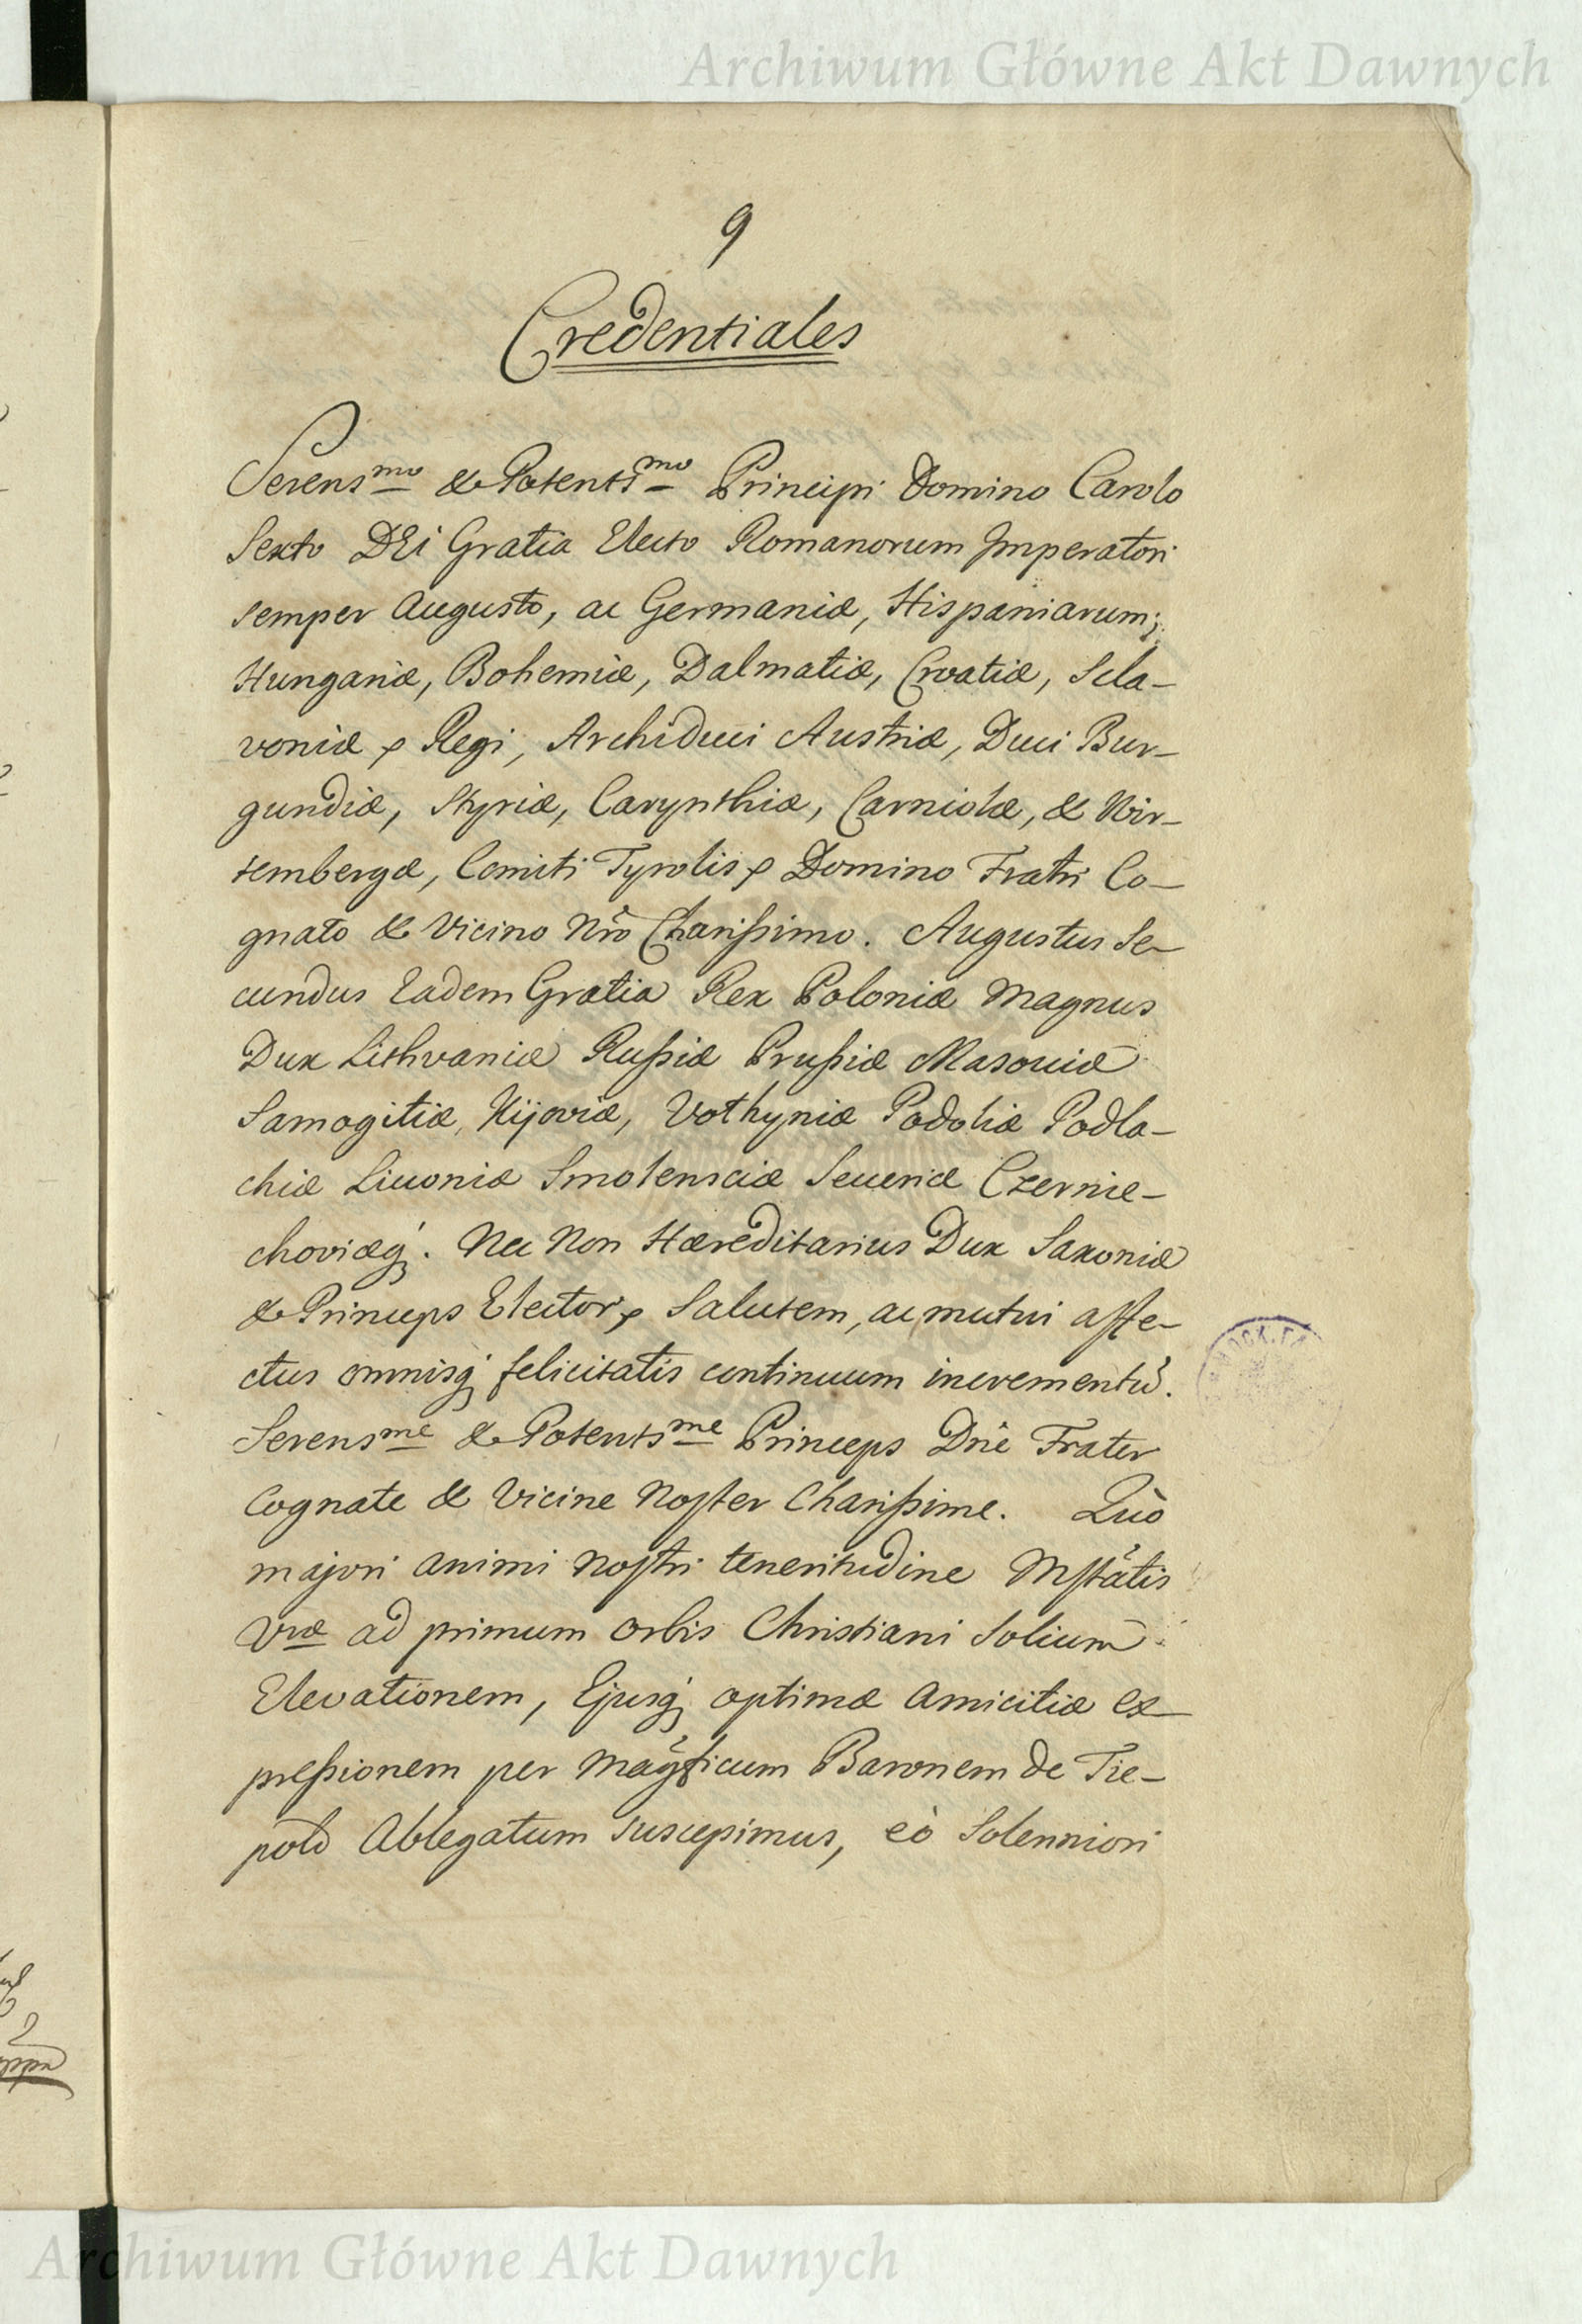 Archiwum Główne Akt Dawnych
9
Credentiales
Serensmo & Potentsmo Principi Domino Carolo
Sexto DEi Gratia Electo Romanorum Imperatori
semper Augusto, ac Germaniæ, Hispaniarum;
Hungariæ, Bohemiæ, Dalmatiæ, Croatiæ, Scla-
voniæ & Regi, Archiduci Austriæ, Duci Bur-
gundiæ, Styriæ, Carynthiæ, Carniolæ, & Wir-
tembergæ, Comiti Tyrolis & Domino Fratri Co-
gnato & Vicino Nrõ Charißimo. Augustus Se-
cundus Eadem Gratia Rex Poloniæ Magnus
Dux Lithvaniæ Rußiæ Prußiæ Masoviæ
Samogitiæ, Kijoviæ, Volhyniæ Podoliæ Podla-
chiæ Livoniæ Smolensciæ Severiæ Czernie-
choviæq;. Nec Non Hæreditarius Dux Saxoniæ
& Princeps Elector & Salutem, ac mutui affe-
ctus omnisq; felicitatis continuum incrementũ.
Serensme & Potentsme Princeps Dnẽ Frater
Cognate & Vicine Noster Charißime. Quò
majori animi nostri teneritudine Mstãtis
Vræ ad primum orbis Christiani Solium
Elevationem, Ejusq; optimæ amicitiæ ex-
preßionem per Magñficum Baronem de Tie-
pold Ablegatum suscepimus, eò Solenniori
Archiwum Główne Akt Dawnych